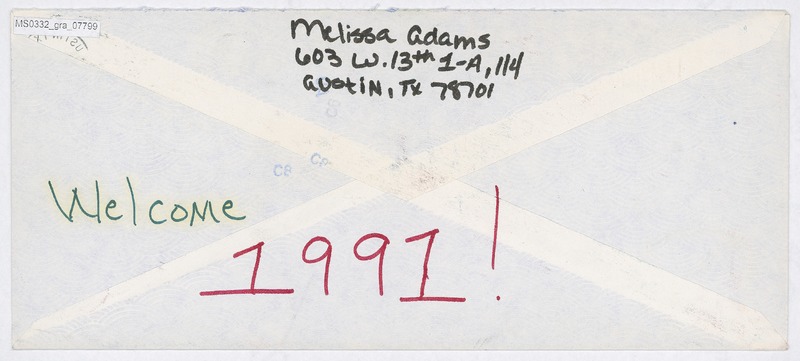 MS0332_gra_07799
Melissa Adams
603 W. 13th 1-A, 114
Austin, TX 78701
CP
CP
Welcome
1991!